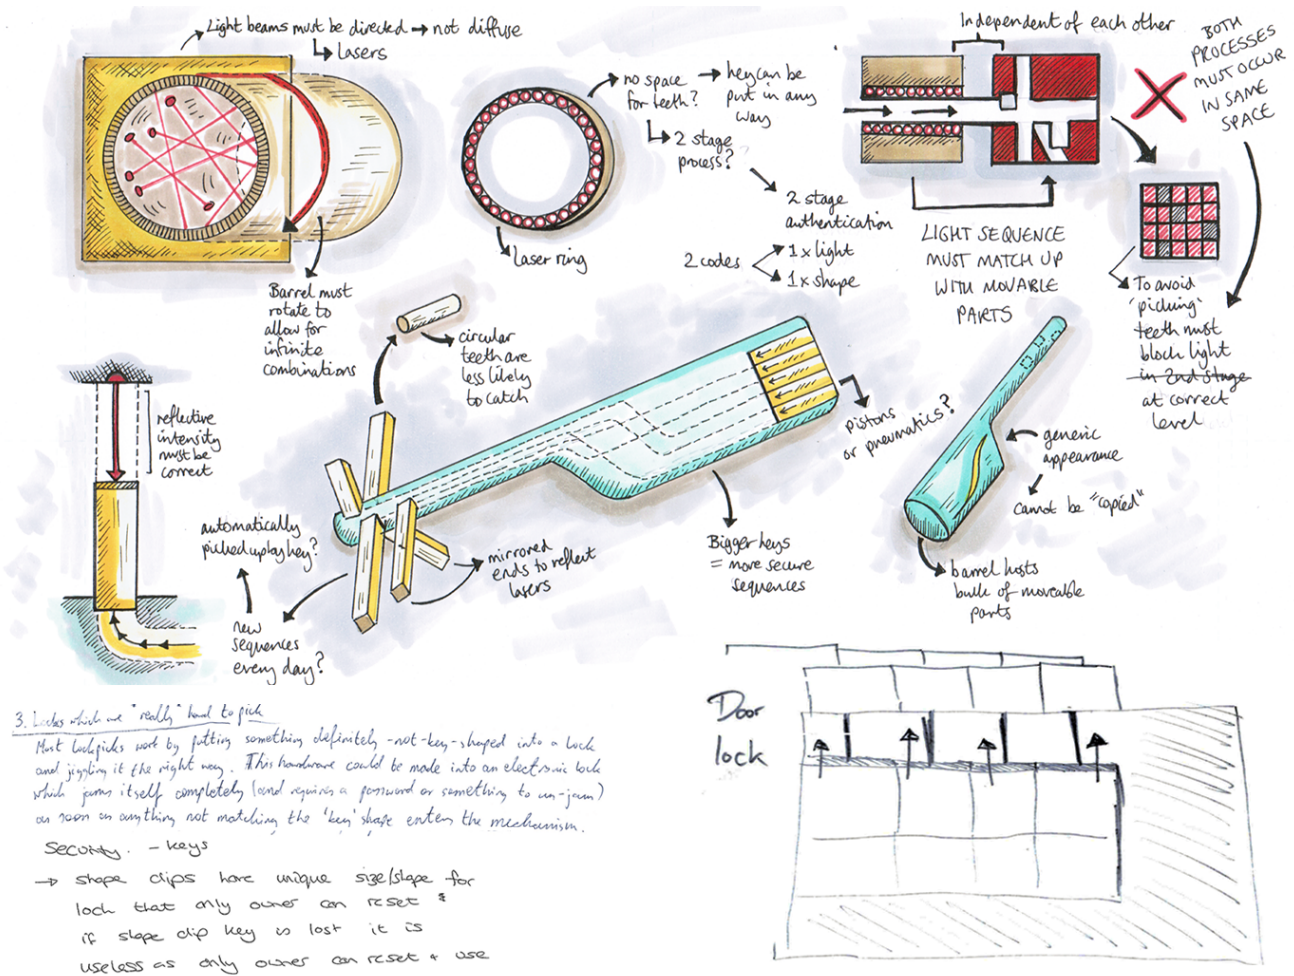 Light beams must be directed → not diffuse
↳ lasers
Barrel must
rotate to
allow for
infinite
combinations
Laser ring
no space → key can be
for teeth? put in any
way
↳ 2 stage
process?
2 stage
authentication
2 codes
1 x light
1 x shape
Independent of each other
BOTH
PROCESSES
MUST OCCUR
IN SAME
SPACE
LIGHT SEQUENCE
MUST MATCH UP
WITH MOVABLE
PARTS
To avoid
'picking'
teeth must
block light
in 2nd stage
at correct
level
circular
teeth are
less likely
to catch
reflective
intensity
must be
correct
pistons
or pneumatics?
generic
appearance
Cannot be "copied"
automatically
picked up by key?
mirrored
ends to reflect
lasers
Bigger keys
= more secure
sequences
barrel hosts
bulk of moveable
parts
new
sequences
every day?
3. Locks which are "really" hard to pick
Most lockpicks work by putting something definitely-not-key-shaped into a lock
and jiggling it the right way. This hardware could be made into an electronic lock
which jams itself completely (and requires a password or something to un-jam)
as soon as anything not matching the 'key' shape enters the mechanism.
Security. - keys
→ shape clips have unique size/shape for
lock that only owner can reset &
if shape clip key is lost it is
useless as only owner can reset & use
Door
lock